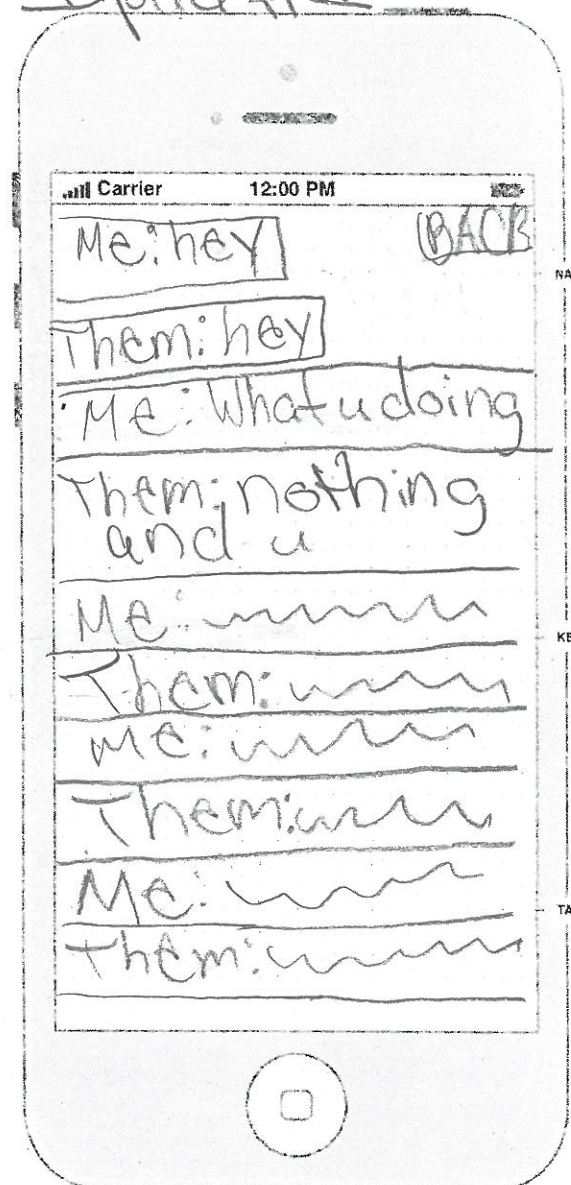 Carrier 12:00 PM
Me: hey
BACK
Them: hey
Me: What u doing
Them: nothing
and u
Me:
Them:
Me:
Them:
Me:
Them:
NA
KE
TA